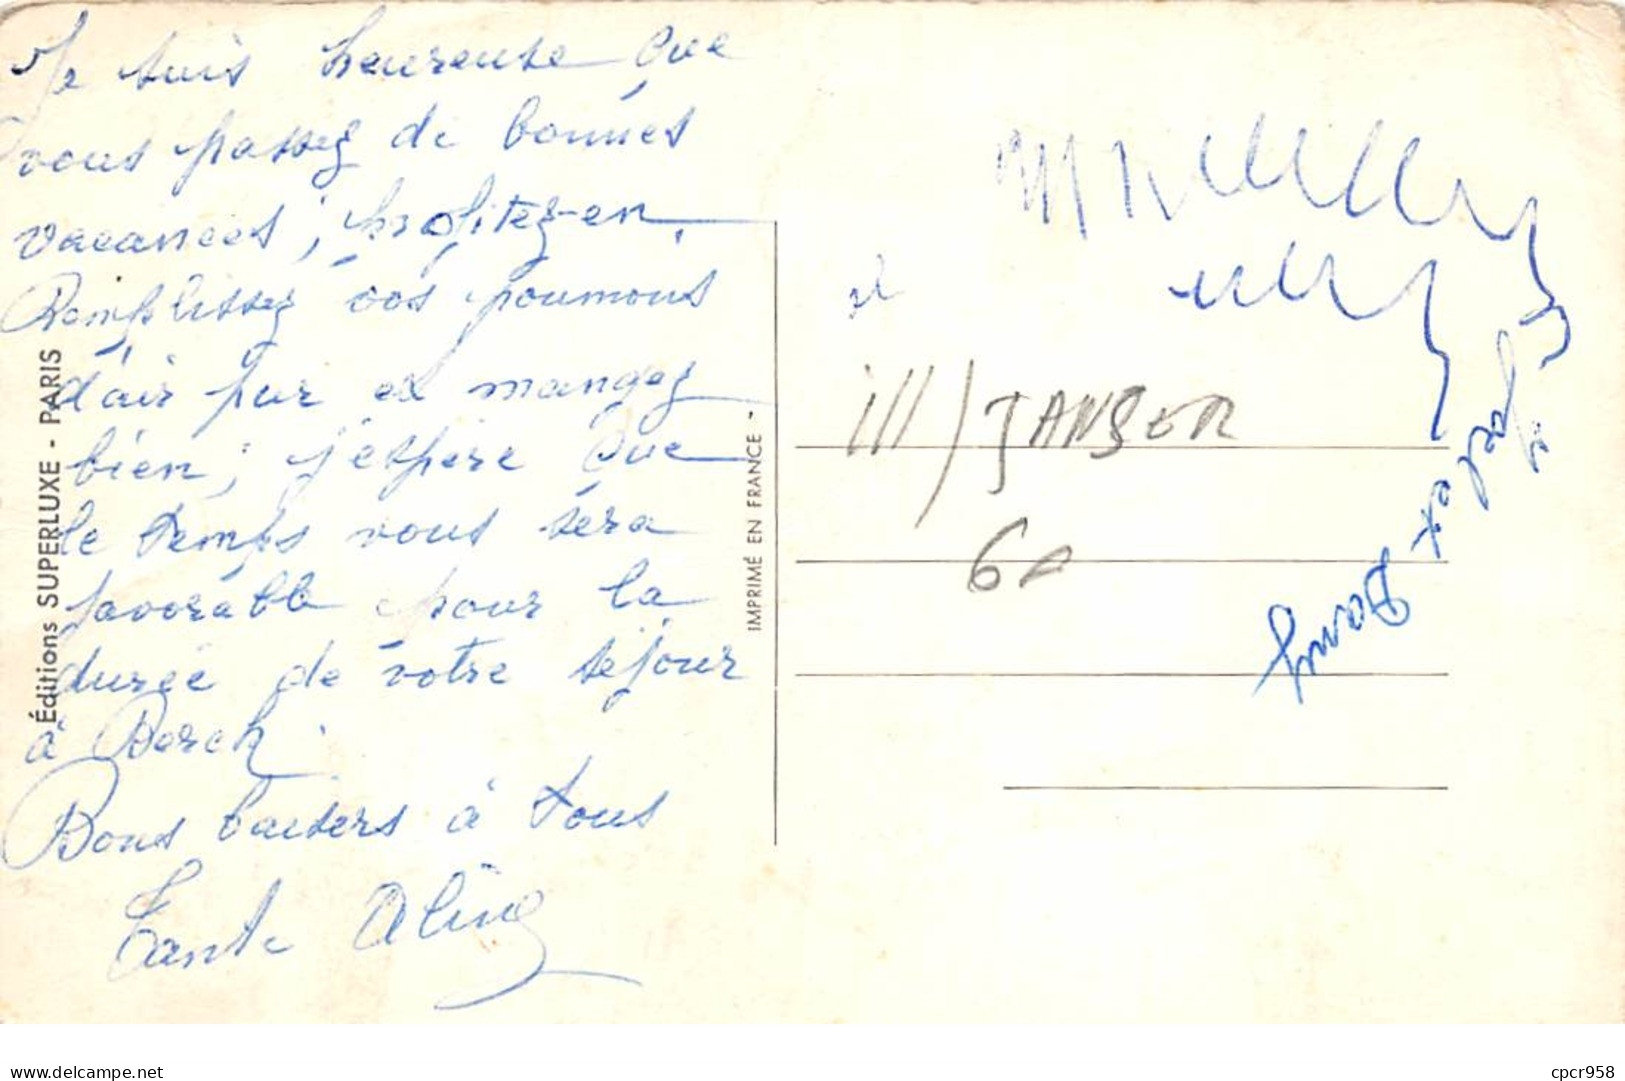 Je suis heureuse que
vous passez de bonnes
vacances, profitez-en.
Remplissez vos poumons
d'air pur et mangez
bien; j'espère que
le temps vous sera
favorable pour la
durée de votre séjour
à Berck.
Bons baisers à tous
Tante Aline
Éditions SUPERLUXE - PARIS
IMPRIMÉ EN FRANCE -
ill/JANSER
6
et Dany
delcampe.net
cpcr958